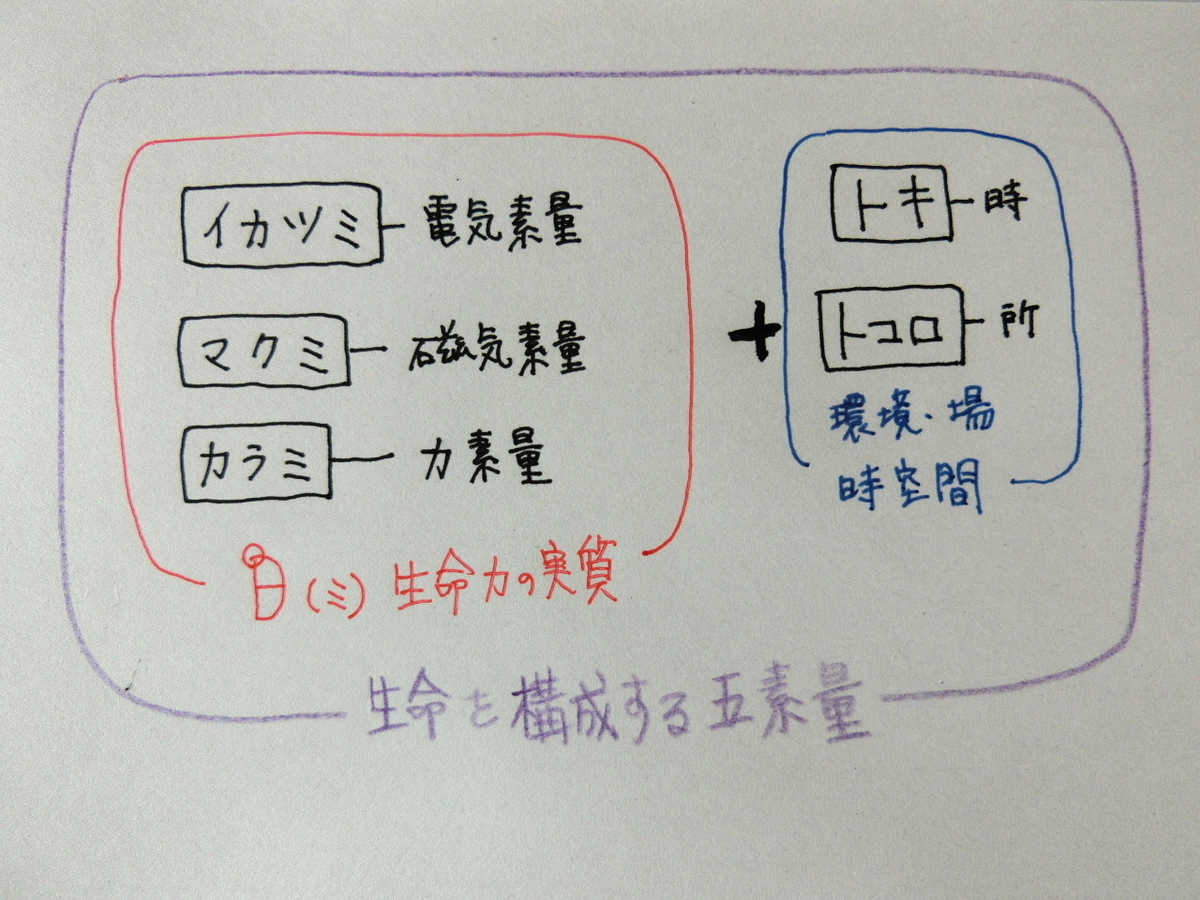 イカツミ 電気素量
マクミ 磁気素量
カラミ 力素量
(ミ) 生命力の実質
+
トキ 時
トコロ 所
環境・場
時空間
生命を構成する五素量